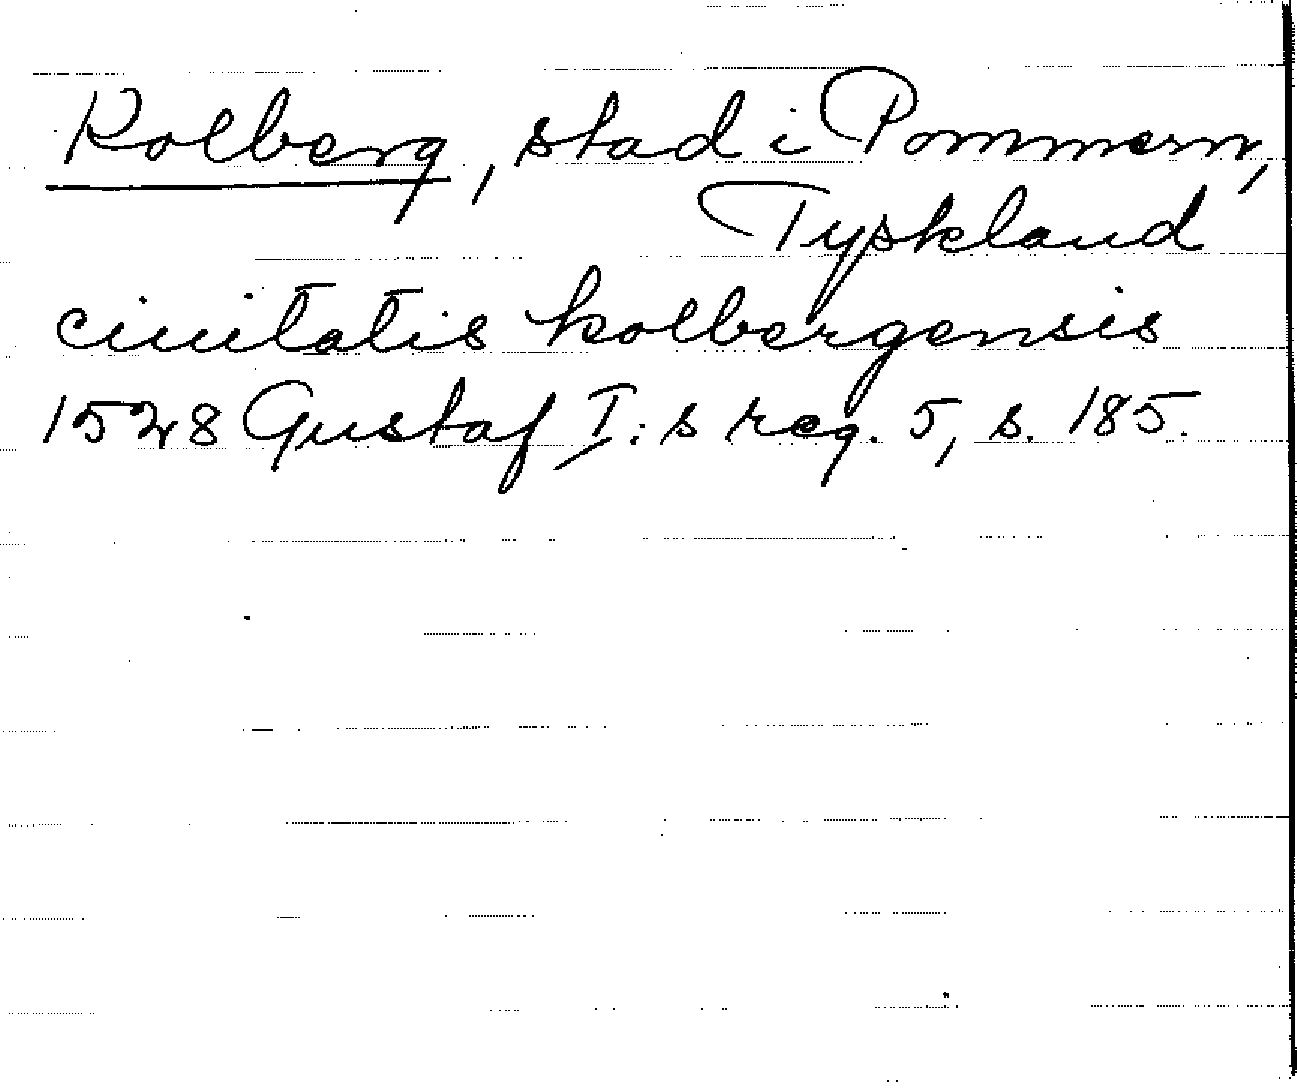 Kolberg, stad i Pommern,
Tyskland
ciuitatis kolbergensis
1528 Gustaf I:s reg. 5, s. 185.